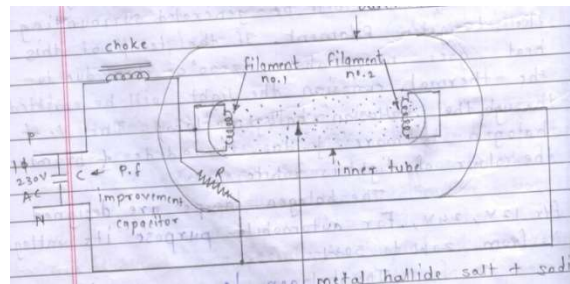 choke
filament
no.1
filament
no.2
P
1ϕ
230V
AC
N
C ← P.f
improvement
capacitor
R
inner tube
metal hallide salt + sodi